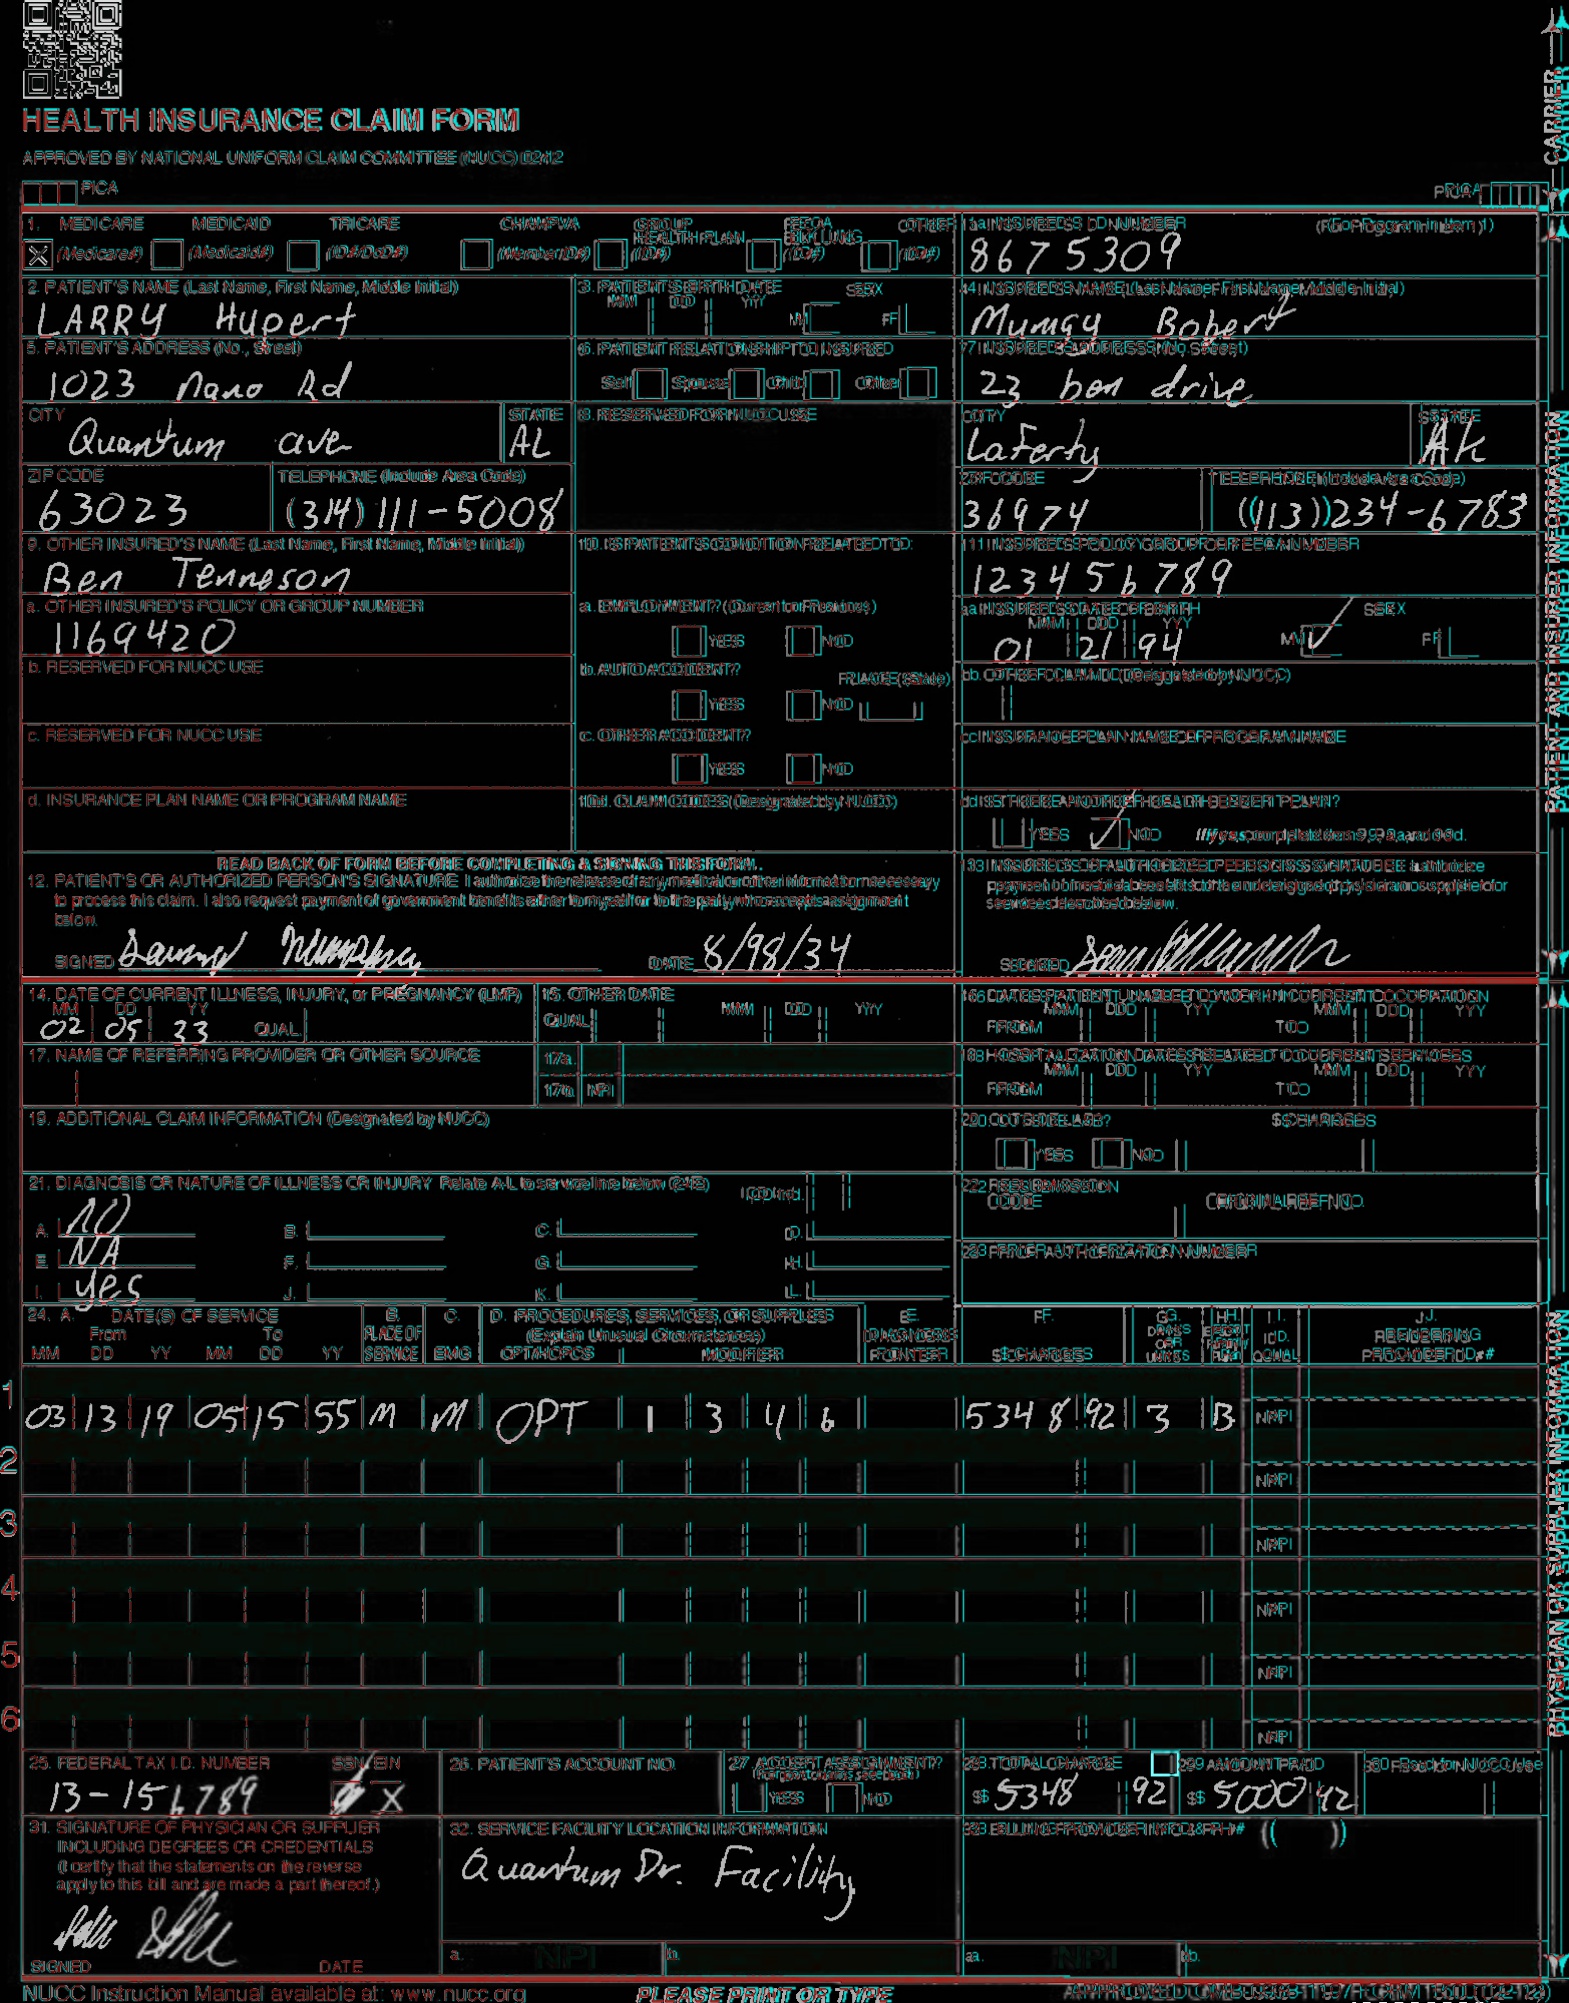 HEALTH INSURANCE CLAIM FORM
APPROVED BY NATIONAL UNIFORM CLAIM COMMITTEE (NUCC) 02/12
PICA
PICA
CARRIER
1. MEDICARE MEDICAID TRICARE CHAMPVA GROUP HEALTH PLAN FECA BLK LUNG OTHER
X (Medicare#) (Medicaid#) (ID#/DoD#) (Member ID#) (ID#) (ID#) (ID#)
1a. INSURED'S I.D. NUMBER (For Program in Item 1)
8675309
2. PATIENT'S NAME (Last Name, First Name, Middle Initial)
LARRY Hupert
3. PATIENT'S BIRTH DATE SEX
MM DD YY M F
4. INSURED'S NAME (Last Name, First Name, Middle Initial)
Mumgy Bobert
5. PATIENT'S ADDRESS (No., Street)
1023 Nano Rd
6. PATIENT RELATIONSHIP TO INSURED
Self Spouse Child Other
7. INSURED'S ADDRESS (No., Street)
23 ben drive
CITY STATE
Quantum ave AL
8. RESERVED FOR NUCC USE
CITY STATE
Laferty AK
ZIP CODE TELEPHONE (Include Area Code)
63023 (314) 111-5008
ZIP CODE TELEPHONE (Include Area Code)
36974 (113) 234-6783
9. OTHER INSURED'S NAME (Last Name, First Name, Middle Initial)
Ben Tenneson
10. IS PATIENT'S CONDITION RELATED TO:
11. INSURED'S POLICY GROUP OR FECA NUMBER
123456789
a. OTHER INSURED'S POLICY OR GROUP NUMBER
1169420
a. EMPLOYMENT? (Current or Previous)
YES NO
a. INSURED'S DATE OF BIRTH SEX
MM DD YY
01 21 94 M F
b. RESERVED FOR NUCC USE
b. AUTO ACCIDENT? PLACE (State)
YES NO
b. OTHER CLAIM ID (Designated by NUCC)
c. RESERVED FOR NUCC USE
c. OTHER ACCIDENT?
YES NO
c. INSURANCE PLAN NAME OR PROGRAM NAME
d. INSURANCE PLAN NAME OR PROGRAM NAME
10d. CLAIM CODES (Designated by NUCC)
d. IS THERE ANOTHER HEALTH BENEFIT PLAN?
YES NO If yes, complete items 9, 9a, and 9d.
READ BACK OF FORM BEFORE COMPLETING & SIGNING THIS FORM.
12. PATIENT'S OR AUTHORIZED PERSON'S SIGNATURE I authorize the release of any medical or other information necessary
to process this claim. I also request payment of government benefits either to myself or to the party who accepts assignment
below.
SIGNED DATE 8/98/34
13. INSURED'S OR AUTHORIZED PERSON'S SIGNATURE I authorize
payment of medical benefits to the undersigned physician or supplier for
services described below.
SIGNED
PATIENT AND INSURED INFORMATION
14. DATE OF CURRENT ILLNESS, INJURY, or PREGNANCY (LMP)
MM DD YY
02 05 33 QUAL.
15. OTHER DATE
QUAL. MM DD YY
16. DATES PATIENT UNABLE TO WORK IN CURRENT OCCUPATION
MM DD YY MM DD YY
FROM TO
17. NAME OF REFERRING PROVIDER OR OTHER SOURCE
17a.
17b. NPI
18. HOSPITALIZATION DATES RELATED TO CURRENT SERVICES
MM DD YY MM DD YY
FROM TO
19. ADDITIONAL CLAIM INFORMATION (Designated by NUCC)
20. OUTSIDE LAB? $ CHARGES
YES NO
21. DIAGNOSIS OR NATURE OF ILLNESS OR INJURY Relate A-L to service line below (24E) ICD Ind.
A. NO B. C. D.
E. NA F. G. H.
I. yes J. K. L.
22. RESUBMISSION CODE ORIGINAL REF. NO.
23. PRIOR AUTHORIZATION NUMBER
24. A. DATE(S) OF SERVICE B. C. D. PROCEDURES, SERVICES, OR SUPPLIES E. F. G. H. I. J.
From To PLACE OF (Explain Unusual Circumstances) DIAGNOSIS DAYS OR UNITS EPSDT Family Plan ID. RENDERING
MM DD YY MM DD YY SERVICE EMG CPT/HCPCS MODIFIER POINTER $ CHARGES QUAL. PROVIDER ID. #
1 03 13 19 05 15 55 M M OPT 1 3 4 6 5348 92 3 B NPI
2 NPI
3 NPI
4 NPI
5 NPI
6 NPI
PHYSICIAN OR SUPPLIER INFORMATION
25. FEDERAL TAX I.D. NUMBER SSN EIN
13-156789 X
26. PATIENT'S ACCOUNT NO.
27. ACCEPT ASSIGNMENT?
(For govt. claims, see back)
YES NO
28. TOTAL CHARGE
$ 5348 92
29. AMOUNT PAID
$ 5000 42
30. Rsvd for NUCC Use
31. SIGNATURE OF PHYSICIAN OR SUPPLIER
INCLUDING DEGREES OR CREDENTIALS
(I certify that the statements on the reverse
apply to this bill and are made a part thereof.)
SIGNED DATE
32. SERVICE FACILITY LOCATION INFORMATION
Quantum Dr. Facility
a. NPI b.
33. BILLING PROVIDER INFO & PH # ( )
a. NPI b.
NUCC Instruction Manual available at: www.nucc.org
PLEASE PRINT OR TYPE
APPROVED OMB-0938-1197 FORM 1500 (02-12)